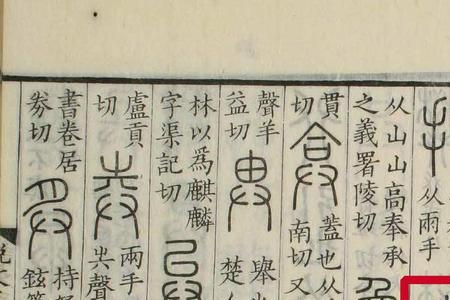 从兩手
从山山高奉承
之義署陵切
貫
切
蓋也从
南切又
聲羊
益切
舉
楚人
林以爲麒麟
字渠記切
盧貢
切
兩手
聲
書卷居
劵切
持
鉉